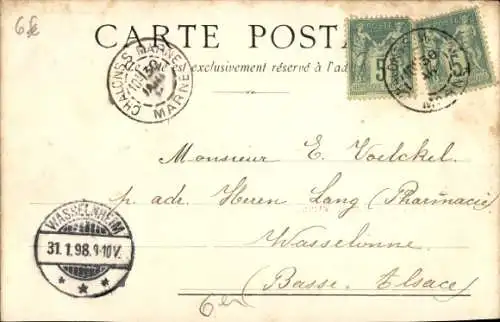 6 fe
CARTE POSTA
Ce côté est exclusivement réservé à l'ad
CHALONS-S-MARNE
30
JANV
MARNE
5 5
Monsieur E. Voelckel
p. adr. Herren Lang (Pharmacie)
Wasselonne
(Basse-Alsace)
WASSELNHEIM
31.1.98.9-10V.
6er